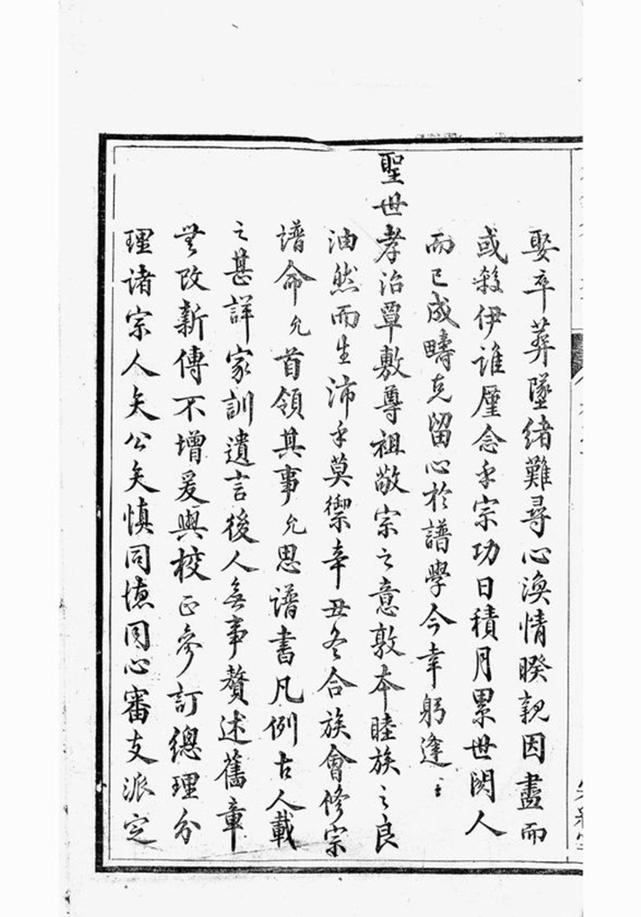 娶卒葬墜緒難尋心渙情睽親因盡而
或殺伊誰廑念乎宗功日積月累世閱人
而已成疇克留心於譜學今幸躬逢
聖世孝治覃敷尊祖敬宗之意敦本睦族之良
油然而生沛乎莫禦辛丑冬合族會修宗
譜命允首領其事允思譜書凡例古人載
之甚詳家訓遺言後人無事贅述舊章
無改新傳不增爰與校正參訂總理分
理諸宗人矢公矢慎同德同心審支派定